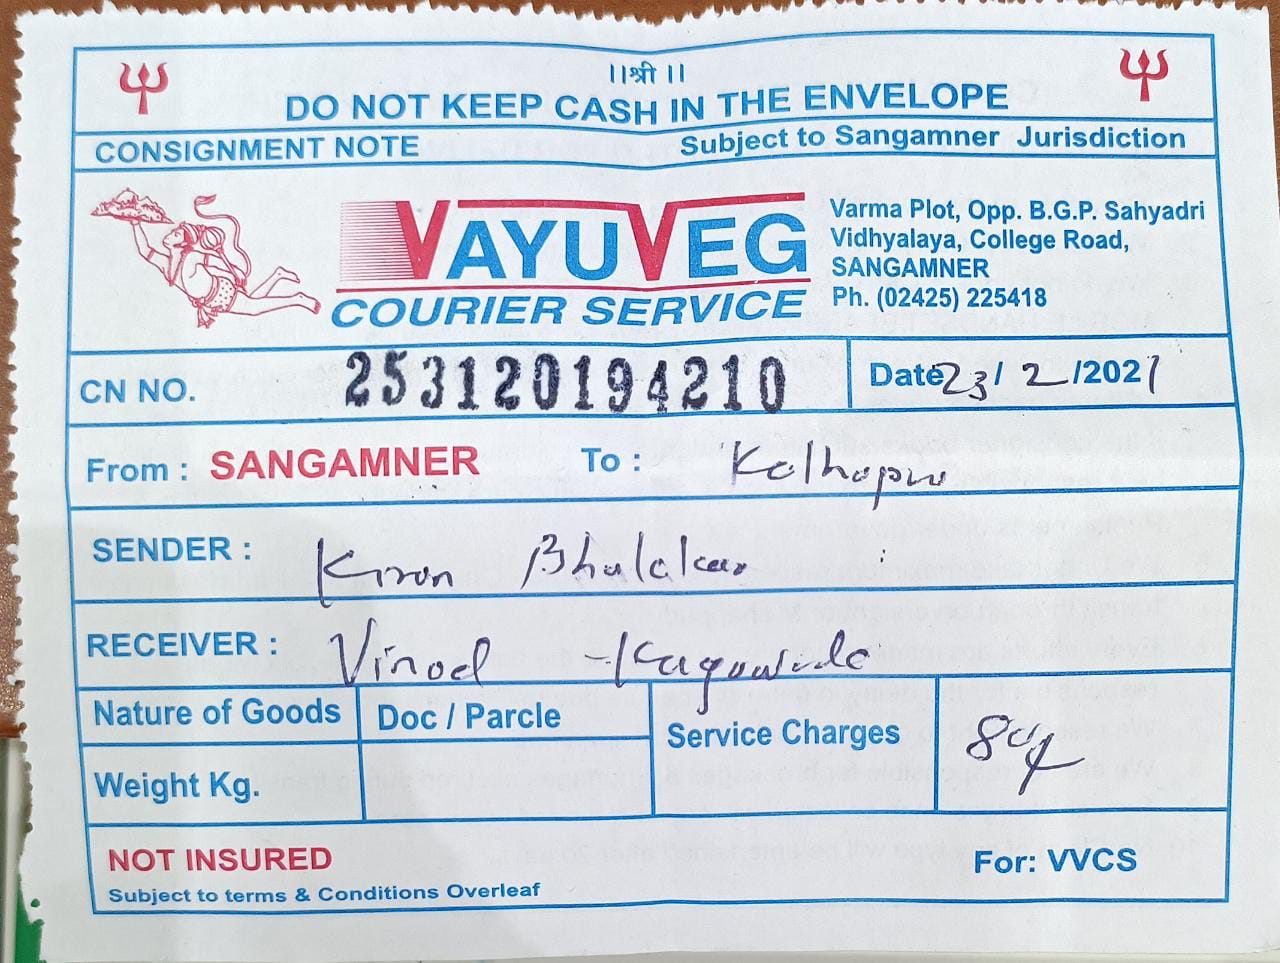 ।।श्री ।।
DO NOT KEEP CASH IN THE ENVELOPE
CONSIGNMENT NOTE Subject to Sangamner Jurisdiction
VAYUVEG
COURIER SERVICE
Varma Plot, Opp. B.G.P. Sahyadri
Vidhyalaya, College Road,
SANGAMNER
Ph. (02425) 225418
CN NO. 253120194210 Date 23/2/2021
From : SANGAMNER To : Kolhapur
SENDER : Kiran Bhalakar
RECEIVER : Vinod Kagawade
Nature of Goods Doc / Parcle Service Charges
Weight Kg.
NOT INSURED For: VVCS
Subject to terms & Conditions Overleaf